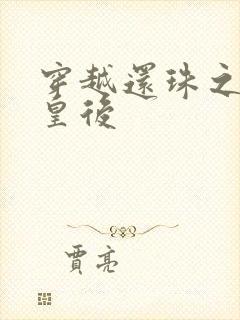 穿越還珠之
皇後
賈亮